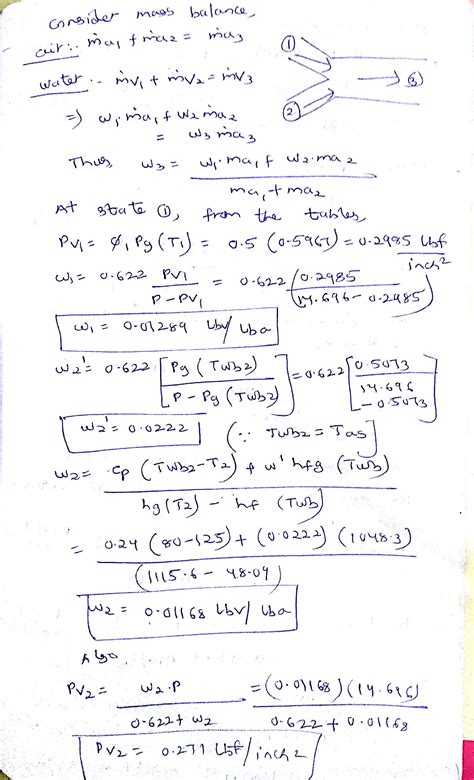 Consider mass balance,
air:- ṁa₁ + ṁa₂ = ṁa₃
①
water:- ṁv₁ + ṁv₂ = ṁv₃
③
②
⇒ ω₁ṁa₁ + ω₂ṁa₂
= ω₃ṁa₃
Thus ω₃ = (ω₁·ma₁ + ω₂·ma₂) / (ma₁ + ma₂)
At state ①, from the tables,
Pv₁ = ϕ₁Pg(T₁) = 0.5 (0.5967) = 0.2985 lbf/inch²
ω₁ = 0.622 Pv₁/(P-Pv₁) = 0.622 (0.2985/(14.696-0.2985))
ω₁ = 0.01289 lbv/lba
ω₂' = 0.622 [Pg(Twb2)/(P-Pg(Twb2))] = 0.622 [0.5073/(14.696-0.5073)]
ω₂' = 0.0222 (∵ Twb2 = Tas]
ω₂ = (cp (Twb2-T2) + ω' hfg (Twb)) / (hg(T2) - hf (Twb))
= (0.24 (80-125) + (0.0222) (1048.3)) / (1115.6 - 48.09)
ω₂ = 0.01168 lbv/lba
Also
Pv₂ = ω₂·P/(0.622+ω₂) = (0.01168)(14.696)/(0.622+0.01168)
Pv₂ = 0.271 lbf/inch²